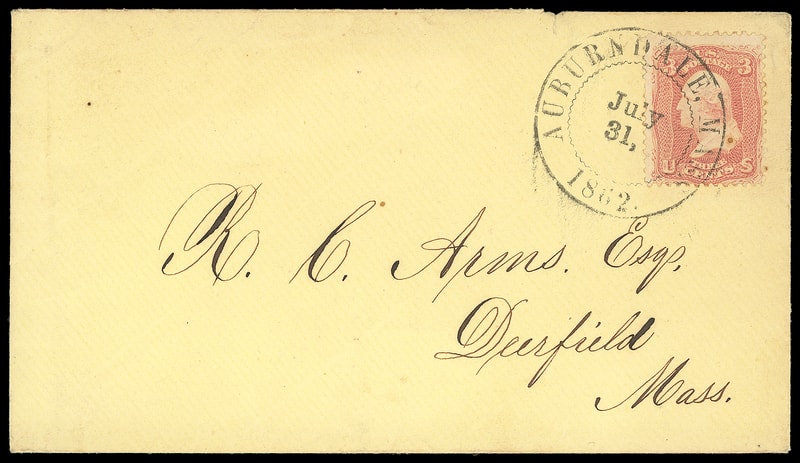 AUBURNDALE, MA
July
31,
1862.
3
U S
R. C. Arms. Esq.
Deerfield
Mass.